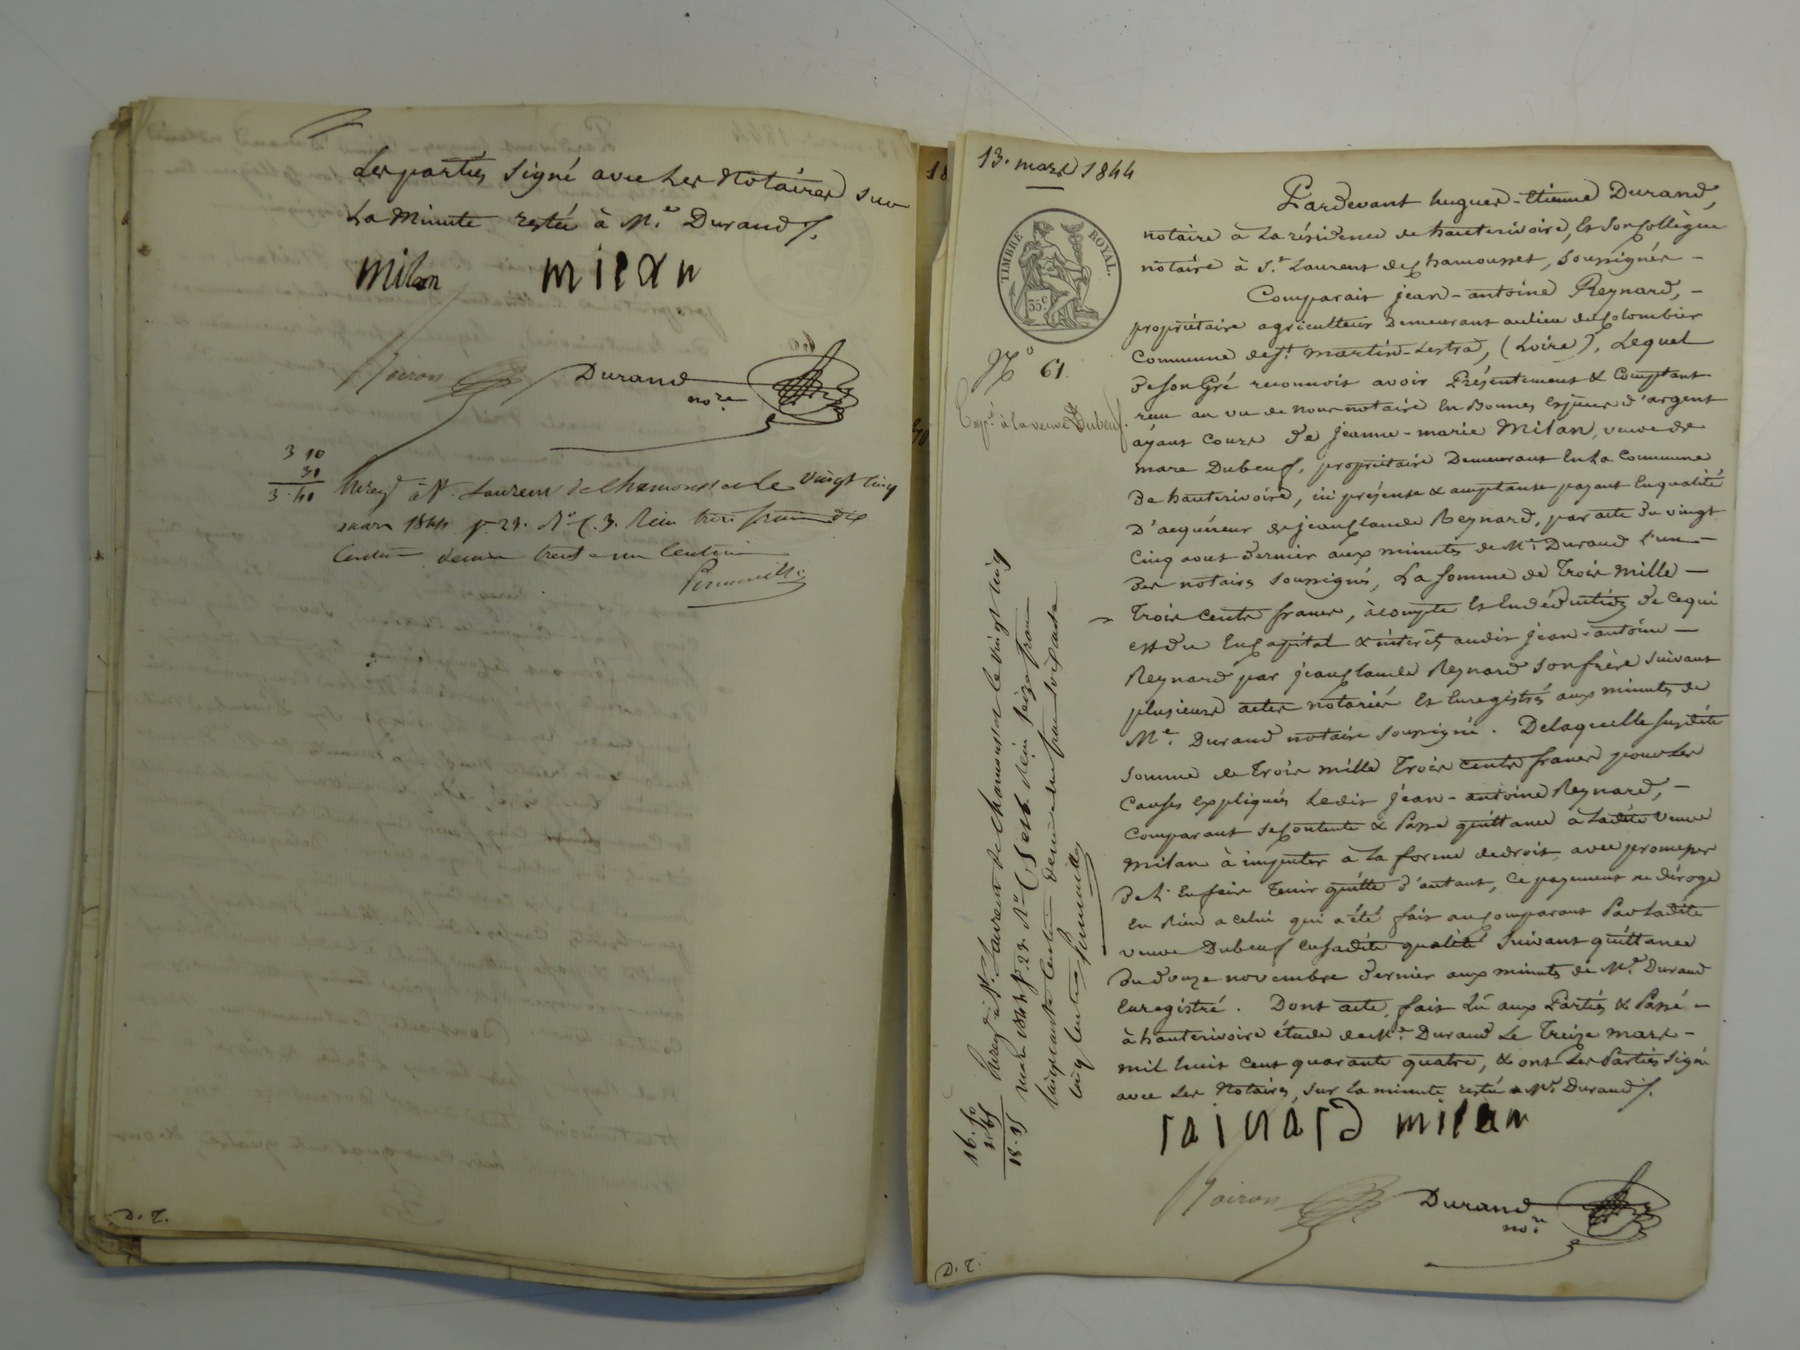 Les parties signé avec Les Notaires sur
La Minute restée à M.e Durand /.
milan milan
Noiron Durand
no.re
3 10
31
3.41
Enreg.é à S.t Laurent de Chamousset Le vingt cinq
mars 1844 f.o 23. R.o C. 3. Reçu trois francs dix
centimes decime trente un Centimes
D. E.
13. mars 1844
TIMBRE ROYAL.
35c
N.o 61.
Exp.é à la veuve Dubeuf.
Pardevant hugues-Etienne Durand,
notaire à La résidence de hauterivoire, Et Son Collègue
notaire à S.t Laurent de Chamousset, Soussignés –
Comparait jean-antoine Reynard, –
propriétaire agriculteur Demeurant au lieu du Colombier
Commune de S.t Martin-Lestra, (Loire), Lequel
de Son Gré reconnoit avoir Présentement & Comptant
reçu au vu de nous notaire En Bonnes Espèces d'argent
ayant Cours de Jeanne-marie Milan, veuve de
marc Dubeuf, propriétaire Demeurant En La Commune
De hauterivoire, ici présente & acceptante payant En qualité
D'acquéreur de jean Claude Reynard, par acte du vingt
Cinq aout dernier aux minutes de M.e Durand l'un –
Des notaires Soussignés, La Somme de Trois Mille –
Trois Cents francs, à compte Et En déduction de Ce qui
est du En Capital & intérêts audit jean-antoine –
Reynard par jean Claude Reynard Son frère Suivant
plusieurs actes notariés Et Enregistrés aux minutes de
M.e Durand notaire Soussigné. De laquelle Susdite
Somme de Trois mille Trois Cents francs pour Les
Causes Expliqués Ledit Jean-antoine Reynard, –
Comparant Se Contente & Passe quittance à Ladite Veuve
Milan à imputer à La forme de droit avec promesse
De L'En faire Tenir quitte d'autant, Ce payement ne déroge
En Rien a celui qui a été fait au Comparant Par Ladite
veuve Dubeuf En Sadite qualité Suivant quittance
Du douze novembre dernier aux minutes de M.e Durand
Enregistré. Dont acte, fait Lu aux Parties & Passé –
à hauterivoire étude de M.e Durand Le Treize mars –
mil huit cent quarante quatre, & ont Les Parties Signé
avec Les Notaires, Sur La minute restée a M.e Durand /.
rainard milan
Noiron Durand
no.re
Enreg.é à S.t Laurent de Chamousset le vingt cinq
mars 1844 f.o 23. R.o C. 5 et 6. Reçu seize francs
Cinquante Centimes decime un franc soixante
cinq Centimes
16.50
1.65
18.15
D. E.